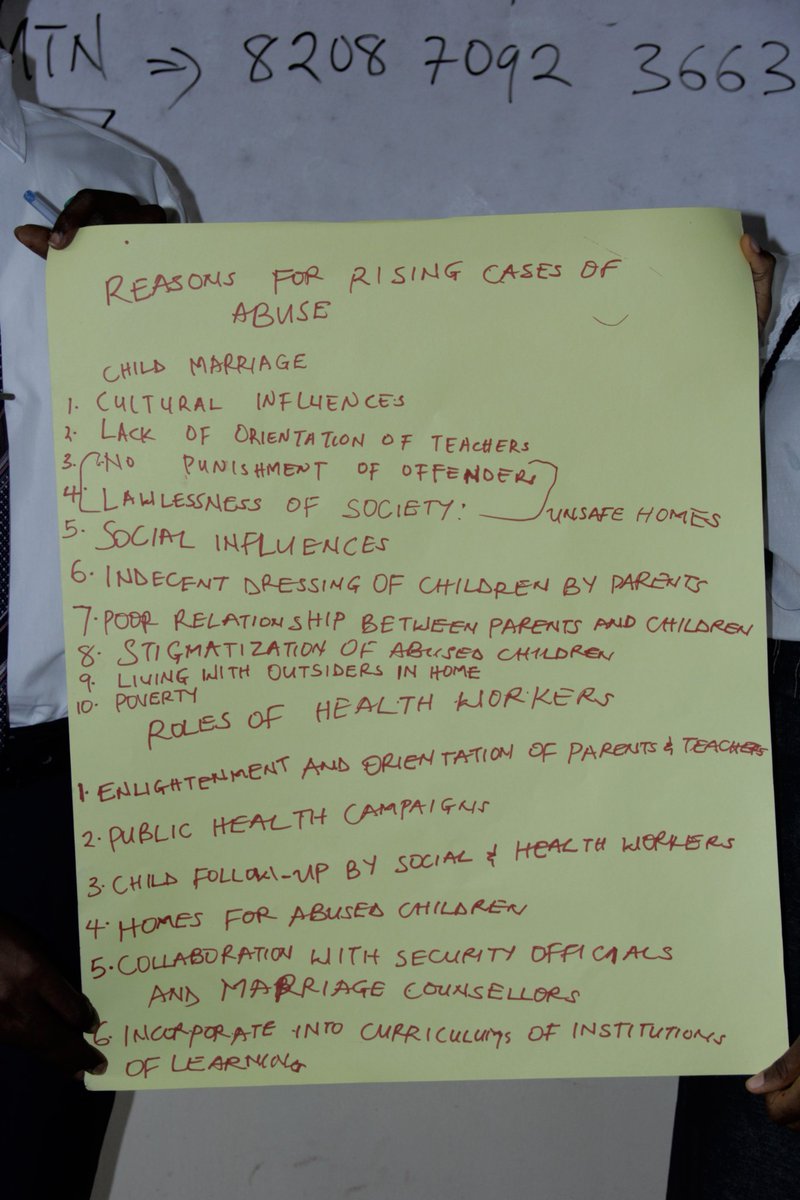 MTN => 8208 7092 3663
REASONS FOR RISING CASES OF
ABUSE
CHILD MARRIAGE
1. CULTURAL INFLUENCES
2. LACK OF ORIENTATION OF TEACHERS
3. NO PUNISHMENT OF OFFENDERS
4. LAWLESSNESS OF SOCIETY: UNSAFE HOMES
5. SOCIAL INFLUENCES
6. INDECENT DRESSING OF CHILDREN BY PARENTS
7. POOR RELATIONSHIP BETWEEN PARENTS AND CHILDREN
8. STIGMATIZATION OF ABUSED CHILDREN
9. LIVING WITH OUTSIDERS IN HOME
10. POVERTY
ROLES OF HEALTH WORKERS
1. ENLIGHTENMENT AND ORIENTATION OF PARENTS & TEACHERS
2. PUBLIC HEALTH CAMPAIGNS
3. CHILD FOLLOW-UP BY SOCIAL & HEALTH WORKERS
4. HOMES FOR ABUSED CHILDREN
5. COLLABORATION WITH SECURITY OFFICIALS
AND MARRIAGE COUNSELLORS
6. INCORPORATE INTO CURRICULUMS OF INSTITUTIONS
OF LEARNING